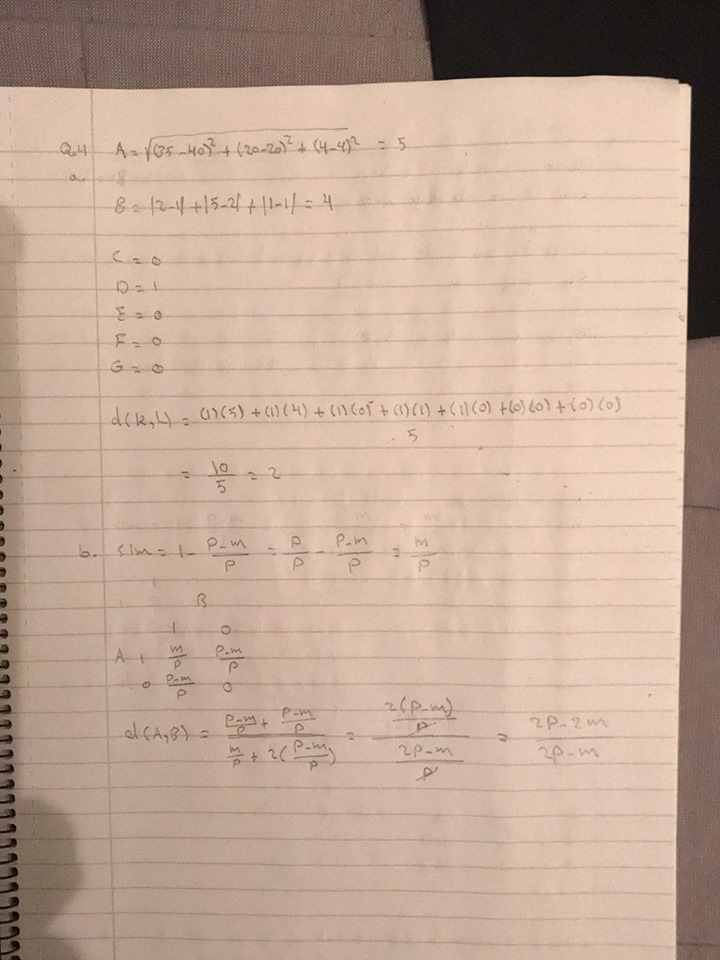 Q4 A = √(35-40)² + (20-20)² + (4-4)² = 5
a.
B = |2-1| + |5-2| + |1-1| = 4
C = 0
D = 1
E = 0
F = 0
G = 0
d(K,L) = (1)(5) + (1)(4) + (1)(0) + (1)(1) + (1)(0) + (0)(0) + (0)(0)
5
= 10/5 = 2
b. sim = 1 - P-m/P = P/P - P-m/P = m/P
B
1 0
A 1 m/P P-m/P
0 P-m/P 0
d(A,B) = (P-m/P + P-m/P)/(m/P + 2(P-m/P)) = (2(P-m)/P)/(2P-m/P) = 2P-2m/2P-m